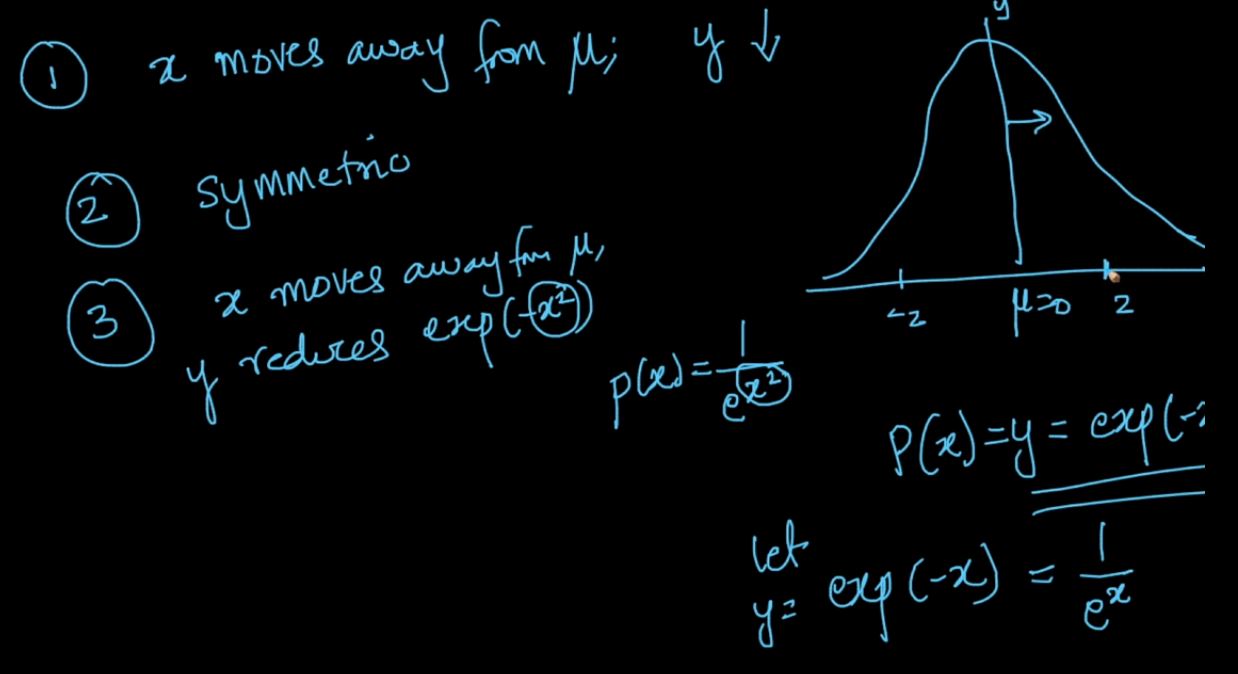 ① x moves away from μ; y ↓
② symmetric
③ x moves away from μ,
y reduces exp(-x²)
p(x) = 1/e^(x²)
y
-2 μ=0 2
P(x) = y = exp(-x
let
y = exp(-x) = 1/e^x